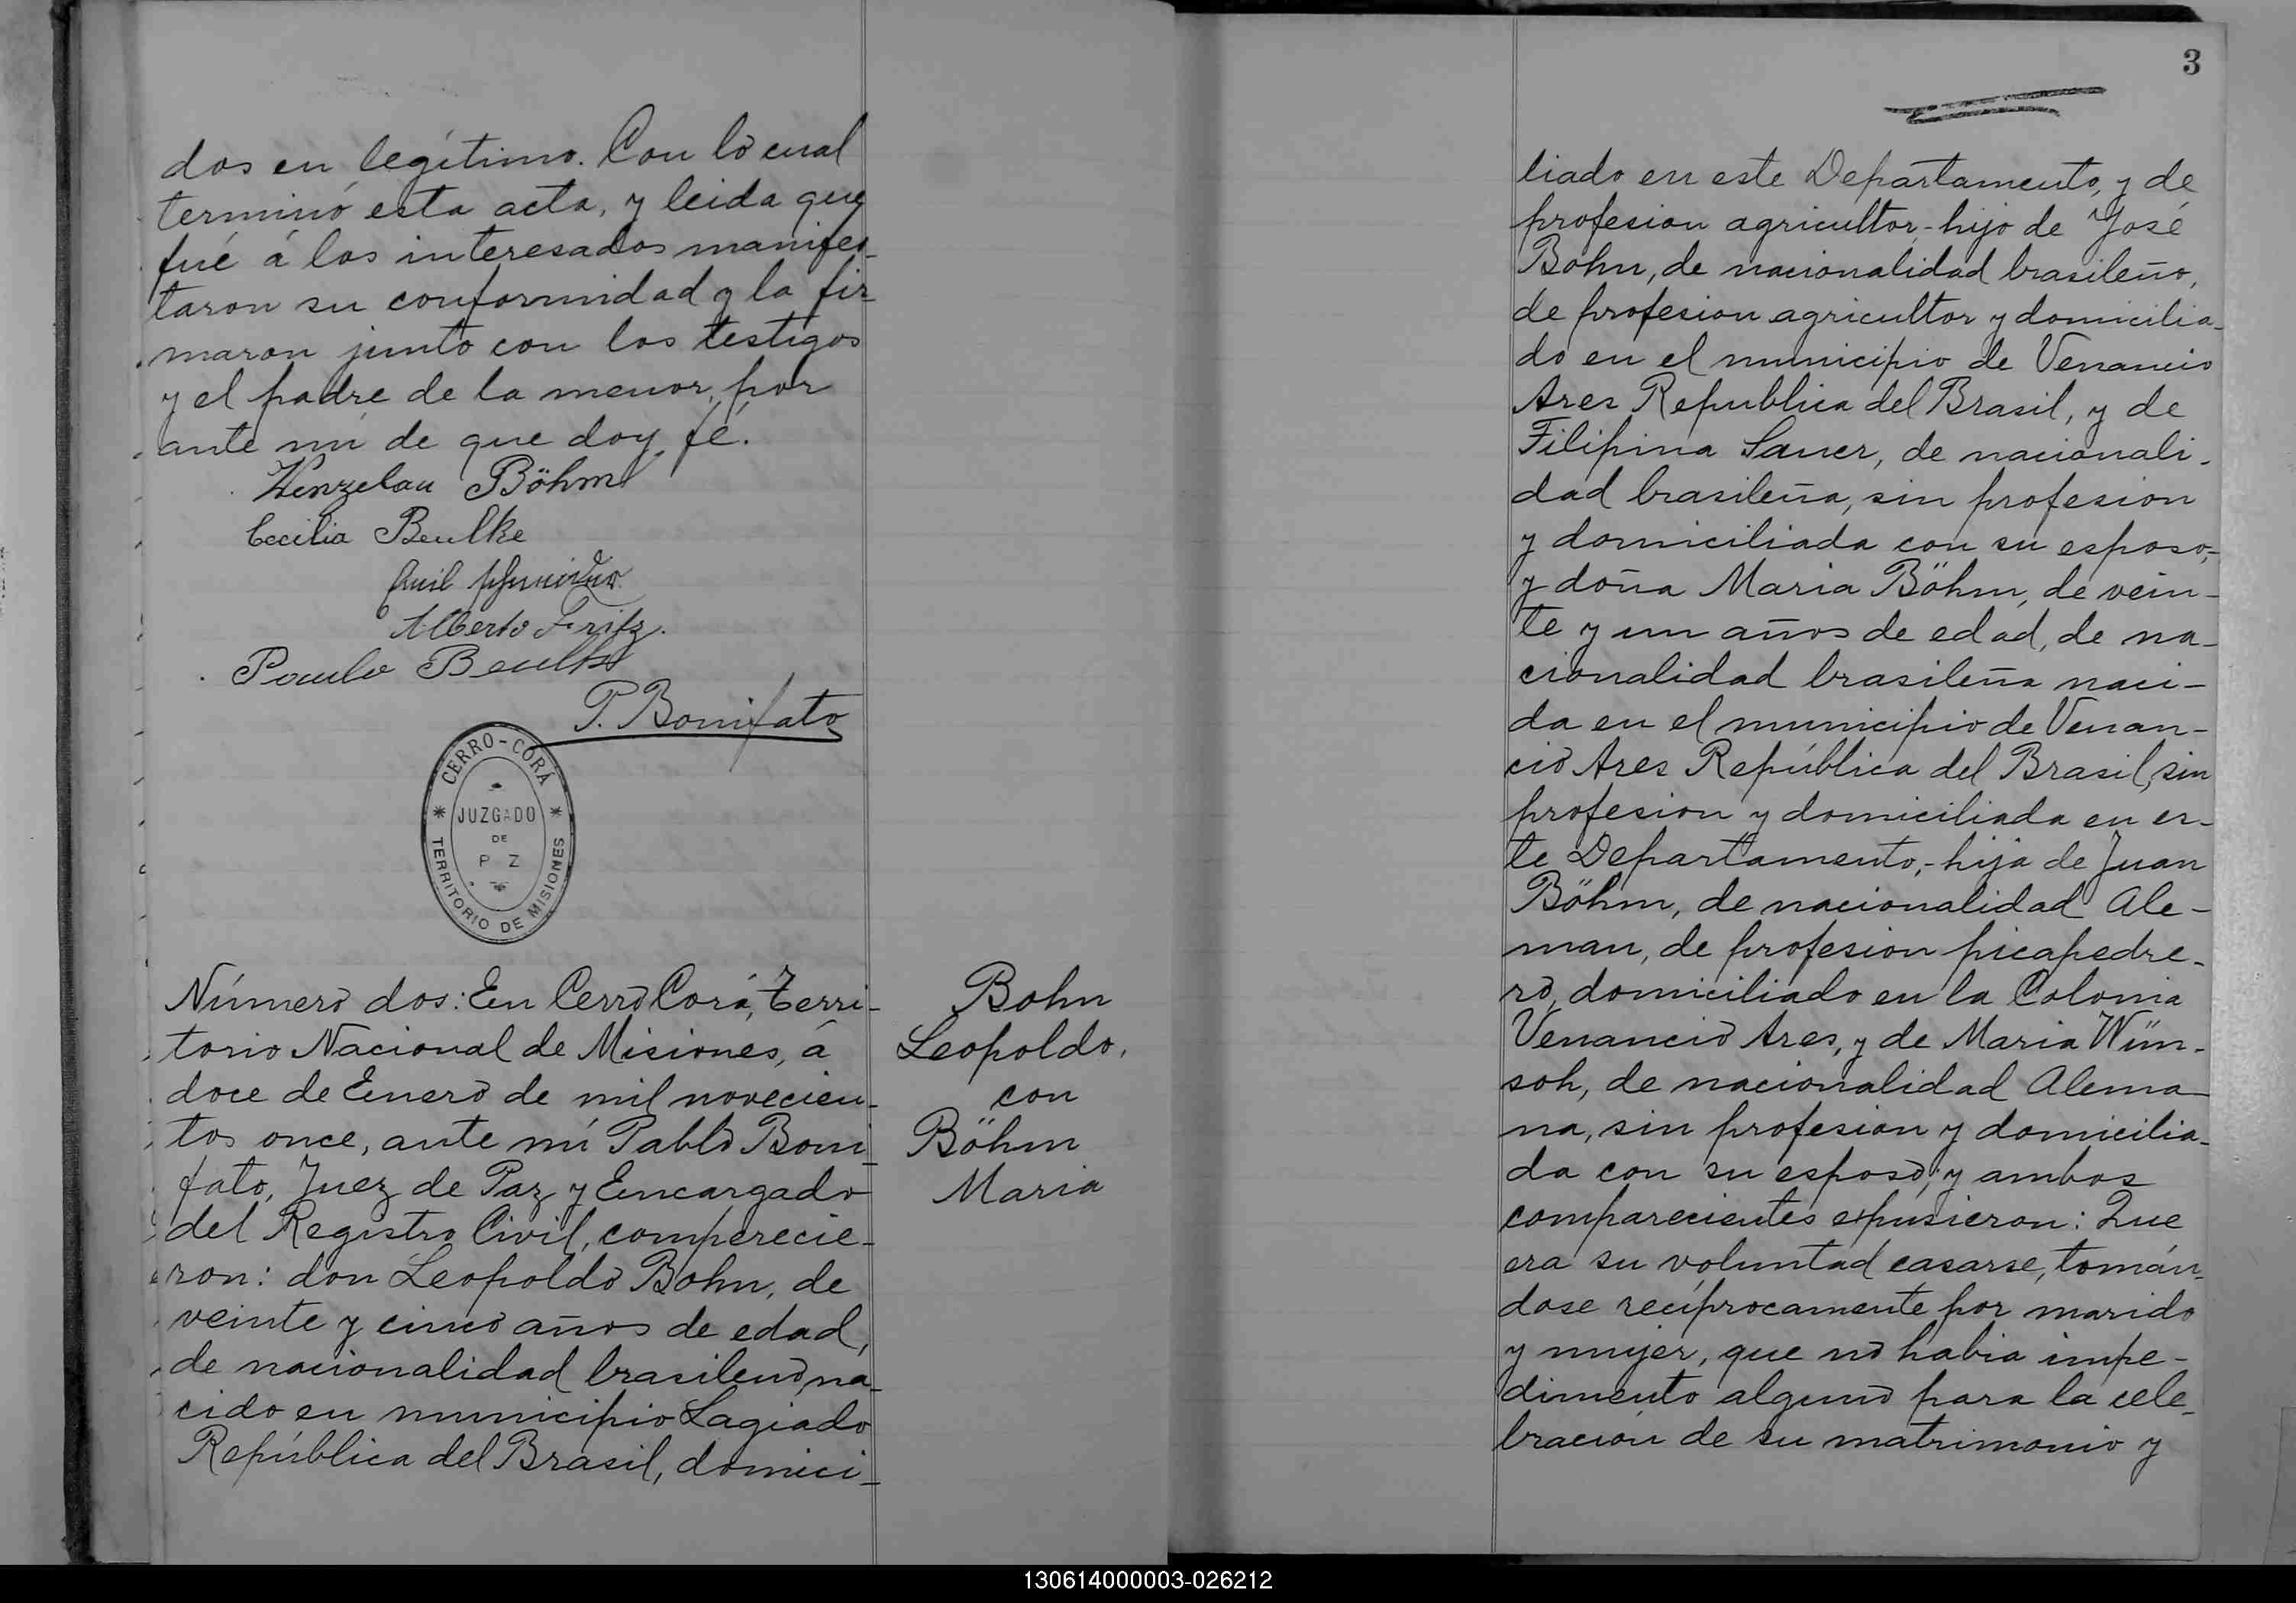 dos en legítimo. Con lo cual
terminó esta acta, y leida que
fué á los interesados manifes-
taron su conformidad y la fir-
maron junto con los testigos
y el padre de la menor, por
ante mi de que doy fé.
Wenzelau Böhm
Cecilia Beulke
Emil Schneider
Alberto Fritz.
Paulo Beulke
P. Bonifato
CERRO-CORÁ
JUZGADO
DE
P Z
TERRITORIO DE MISIONES
Número dos: En Cerro Corá, Terri-
torio Nacional de Misiones, á
doce de Enero de mil novecien-
tos once, ante mí Pablo Boni-
fato, Juez de Paz y Encargado
del Registro Civil, comperecie-
ron: don Leopoldo Bohn, de
veinte y cinco años de edad,
de nacionalidad brasileño, na-
cido en municipio Lagiado
República del Brasil, domici-
Bohn
Leopoldo.
con
Böhm
Maria
3
liado en este Departamento, y de
profesion agricultor,-hijo de José
Bohn, de nacionalidad brasileño,
de profesion agricultor y domicilia-
do en el municipio de Venancio
Ares Republica del Brasil, y de
Filipina Sauer, de nacionali-
dad brasileña, sin profesion
y domiciliada con su esposo,-
y doña Maria Böhm, de vein-
te y un años de edad, de na-
cionalidad brasileña naci-
da en el municipio de Venan-
cio Ares República del Brasil, sin
profesion y domiciliada en es-
te Departamento,-hija de Juan
Böhm, de nacionalidad Ale-
man, de profesion picapedre-
ro, domiciliado en la Colonia
Venancio Ares, y de Maria Wün-
soh, de nacionalidad Alema-
na, sin profesion y domicilia-
da con su esposo; y ambos
comparecientes expusieron: Que
era su voluntad casarse, tomán-
dose recíprocamente por marido
y mujer, que no habia impe-
dimento alguno para la cele-
bración de su matrimonio y
130614000003-026212